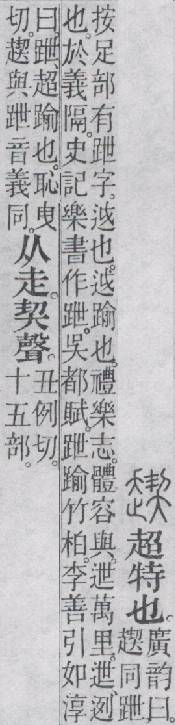 超特也。廣韵曰。
同跇
按足部有跇字。越也。越踰也。禮樂志。體容與。迣萬里。迣迾
也。於義隔。史記樂書作跇。吳都賦。跇踰竹柏。李善引如淳
曰。跇、超踰也。恥曳
切。與跇音義同。从走。契聲。丑例切。
十五部。